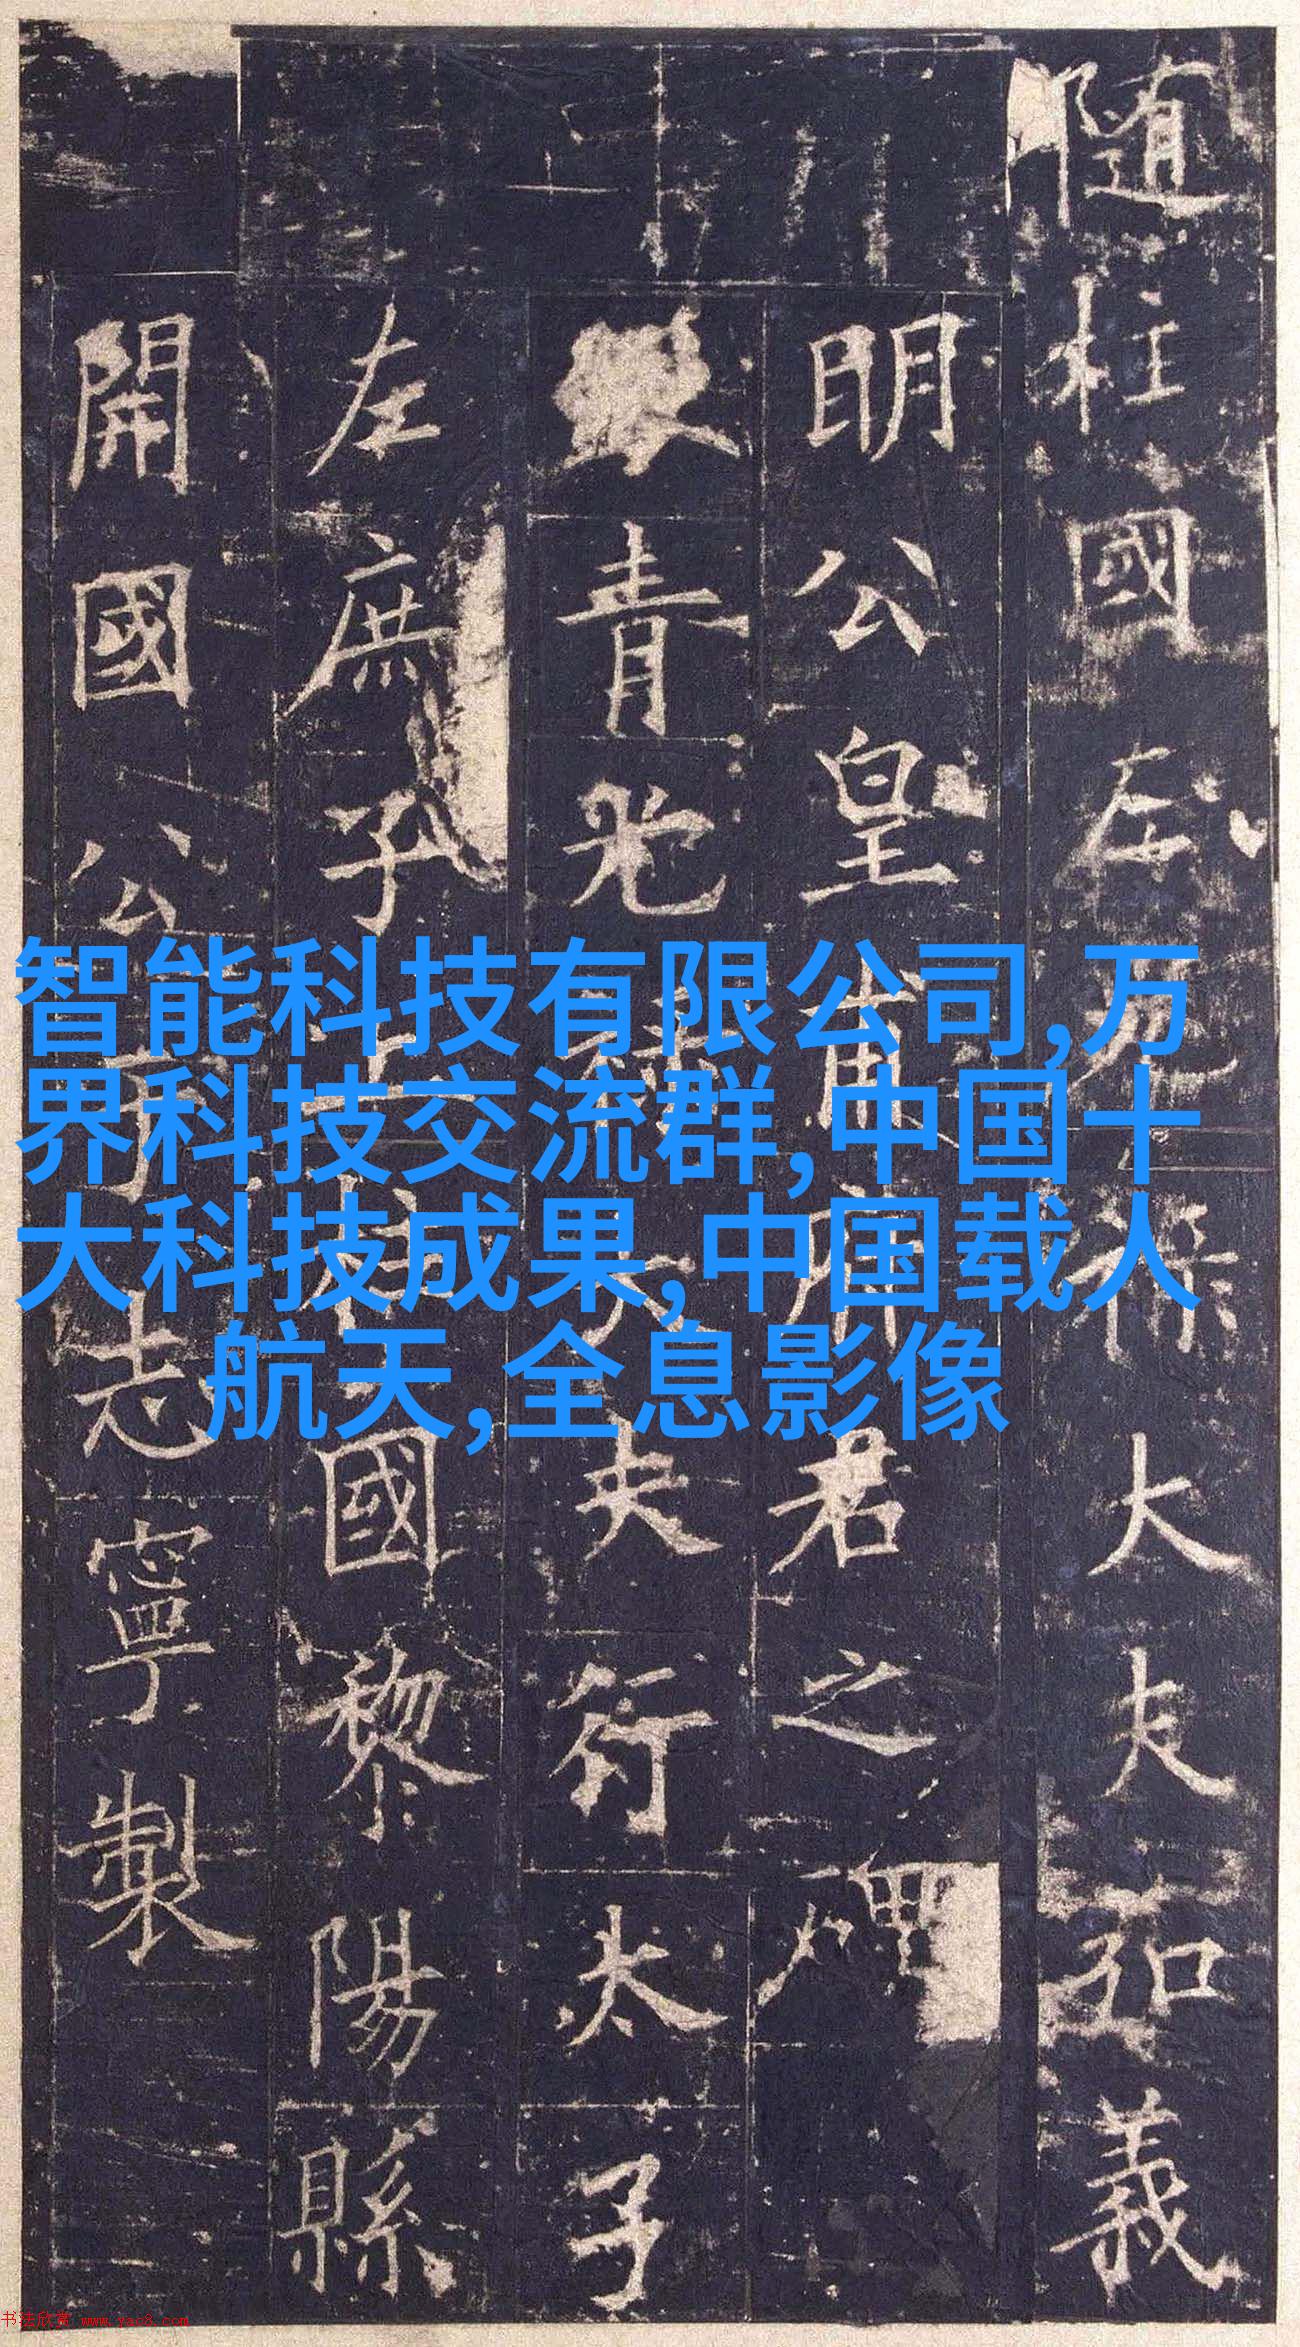 隨柱國左光祿大夫弘義
明公皇甫府君之碑
銀青光祿大夫行太子
左庶子上柱國黎陽縣
開國公于志寧製
智能科技有限公司,万
界科技交流群,中国十
大科技成果,中国载人
航天,全息影像
书法欣赏 www.yac8.com